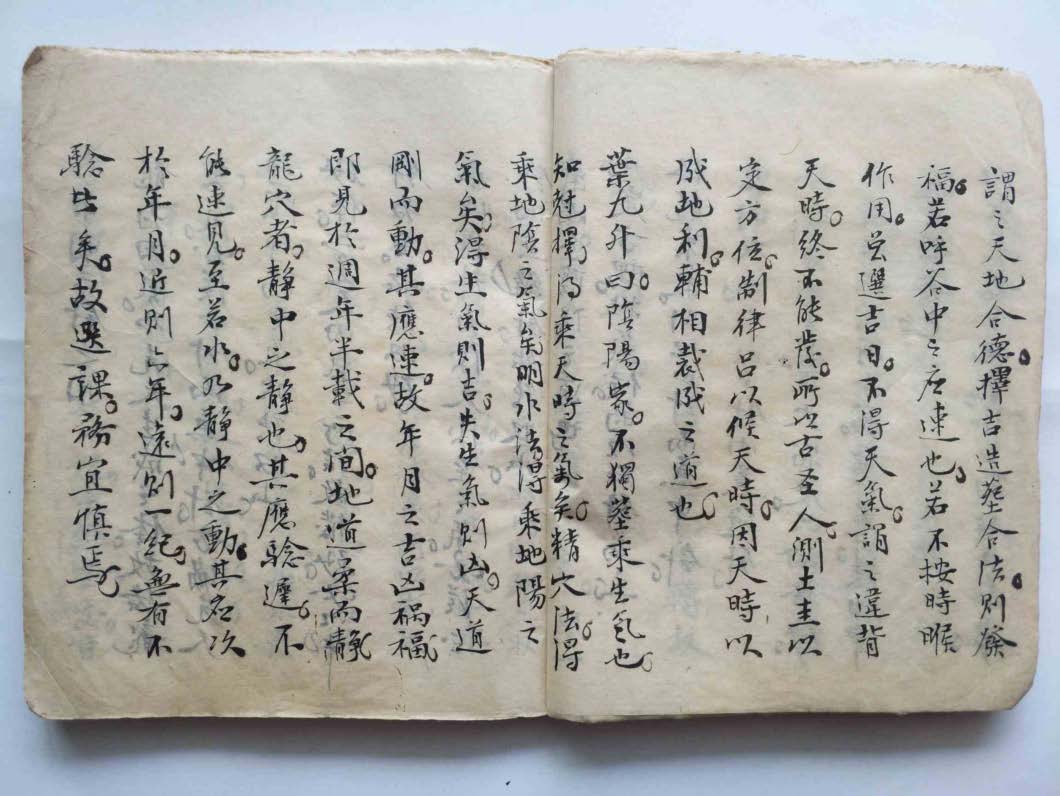 謂之天地合德。擇吉造塟合法。則發
福。若呼谷中之应速也。若不按時睺
作用。妄選吉日。不得天氣。謂之違背
天時。終不能發。所以古圣人。測土圭以
定方位。制律呂以候天時。因天時以
成地利。輔相裁成之道也。
葉九升曰。陰陽家。不獨塟乘生氣也。
知尅擇。乃乘天時之氣矣。精穴法。得
乘地陰之氣矣。明水法得乘地陽之
氣矣。得生氣則吉。失生氣則凶。天道
剛而動。其應速。故年月之吉凶禍福。
即見於週年半載之间。地道柔而靜。
龍穴者。靜中之靜也。其應驗遲。不
能速見。至若水。乃靜中之動。其应次
於年月。近則六年。遠則一紀。無有不
驗此矣。故選課。務宜慎焉。